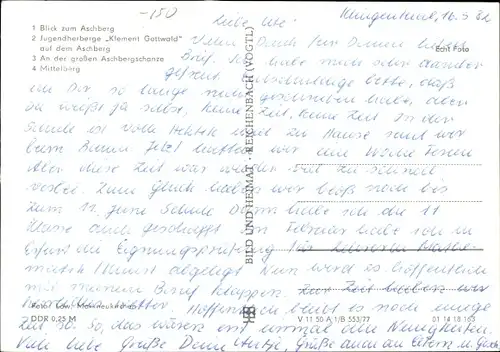 -,50
Klingenthal, 16.5.82
Liebe Ute!
1 Blick zum Aschberg
2 Jugendherberge „Klement Gottwald"
auf dem Aschberg
3 An der großen Aschbergschanze
4 Mittelberg
Echt Foto
Vielen Dank für Deinen lieben
Brief. Ich habe mich sehr darüber
gefreut. Entschuldige bitte, daß
ich Dir so lange nicht geschrieben habe, aber
Du weißt ja selbst, keine Zeit, keine Zeit. In der
Schule ist voll Hektik und zu Hause sind wir
beim Bauen. Jetzt hatten wir eine Woche Ferien
Aber diese Zeit war wieder viel zu schnell
vorbei. Zum Glück haben wir bloß noch bis
zum 11. Juni Schule. Dann habe ich die 11.
Klasse auch geschafft. Im Februar habe ich in
Erfurt die Eignungsprüfung für
Kunst abgelegt. Nun wird es hoffentlich
mit meinem Beruf klappen.
Hoffentlich bleibt es noch einige
Zeit so. So, das wären erst einmal alle Neuigkeiten.
Viele liebe Grüße Deine Antje, Grüße auch an Eltern u.
BILD UND HEIMAT · REICHENBACH (VOGTL)
DDR 0,25 M
V 11 50 A 1/B 553/77
01 14 18 163